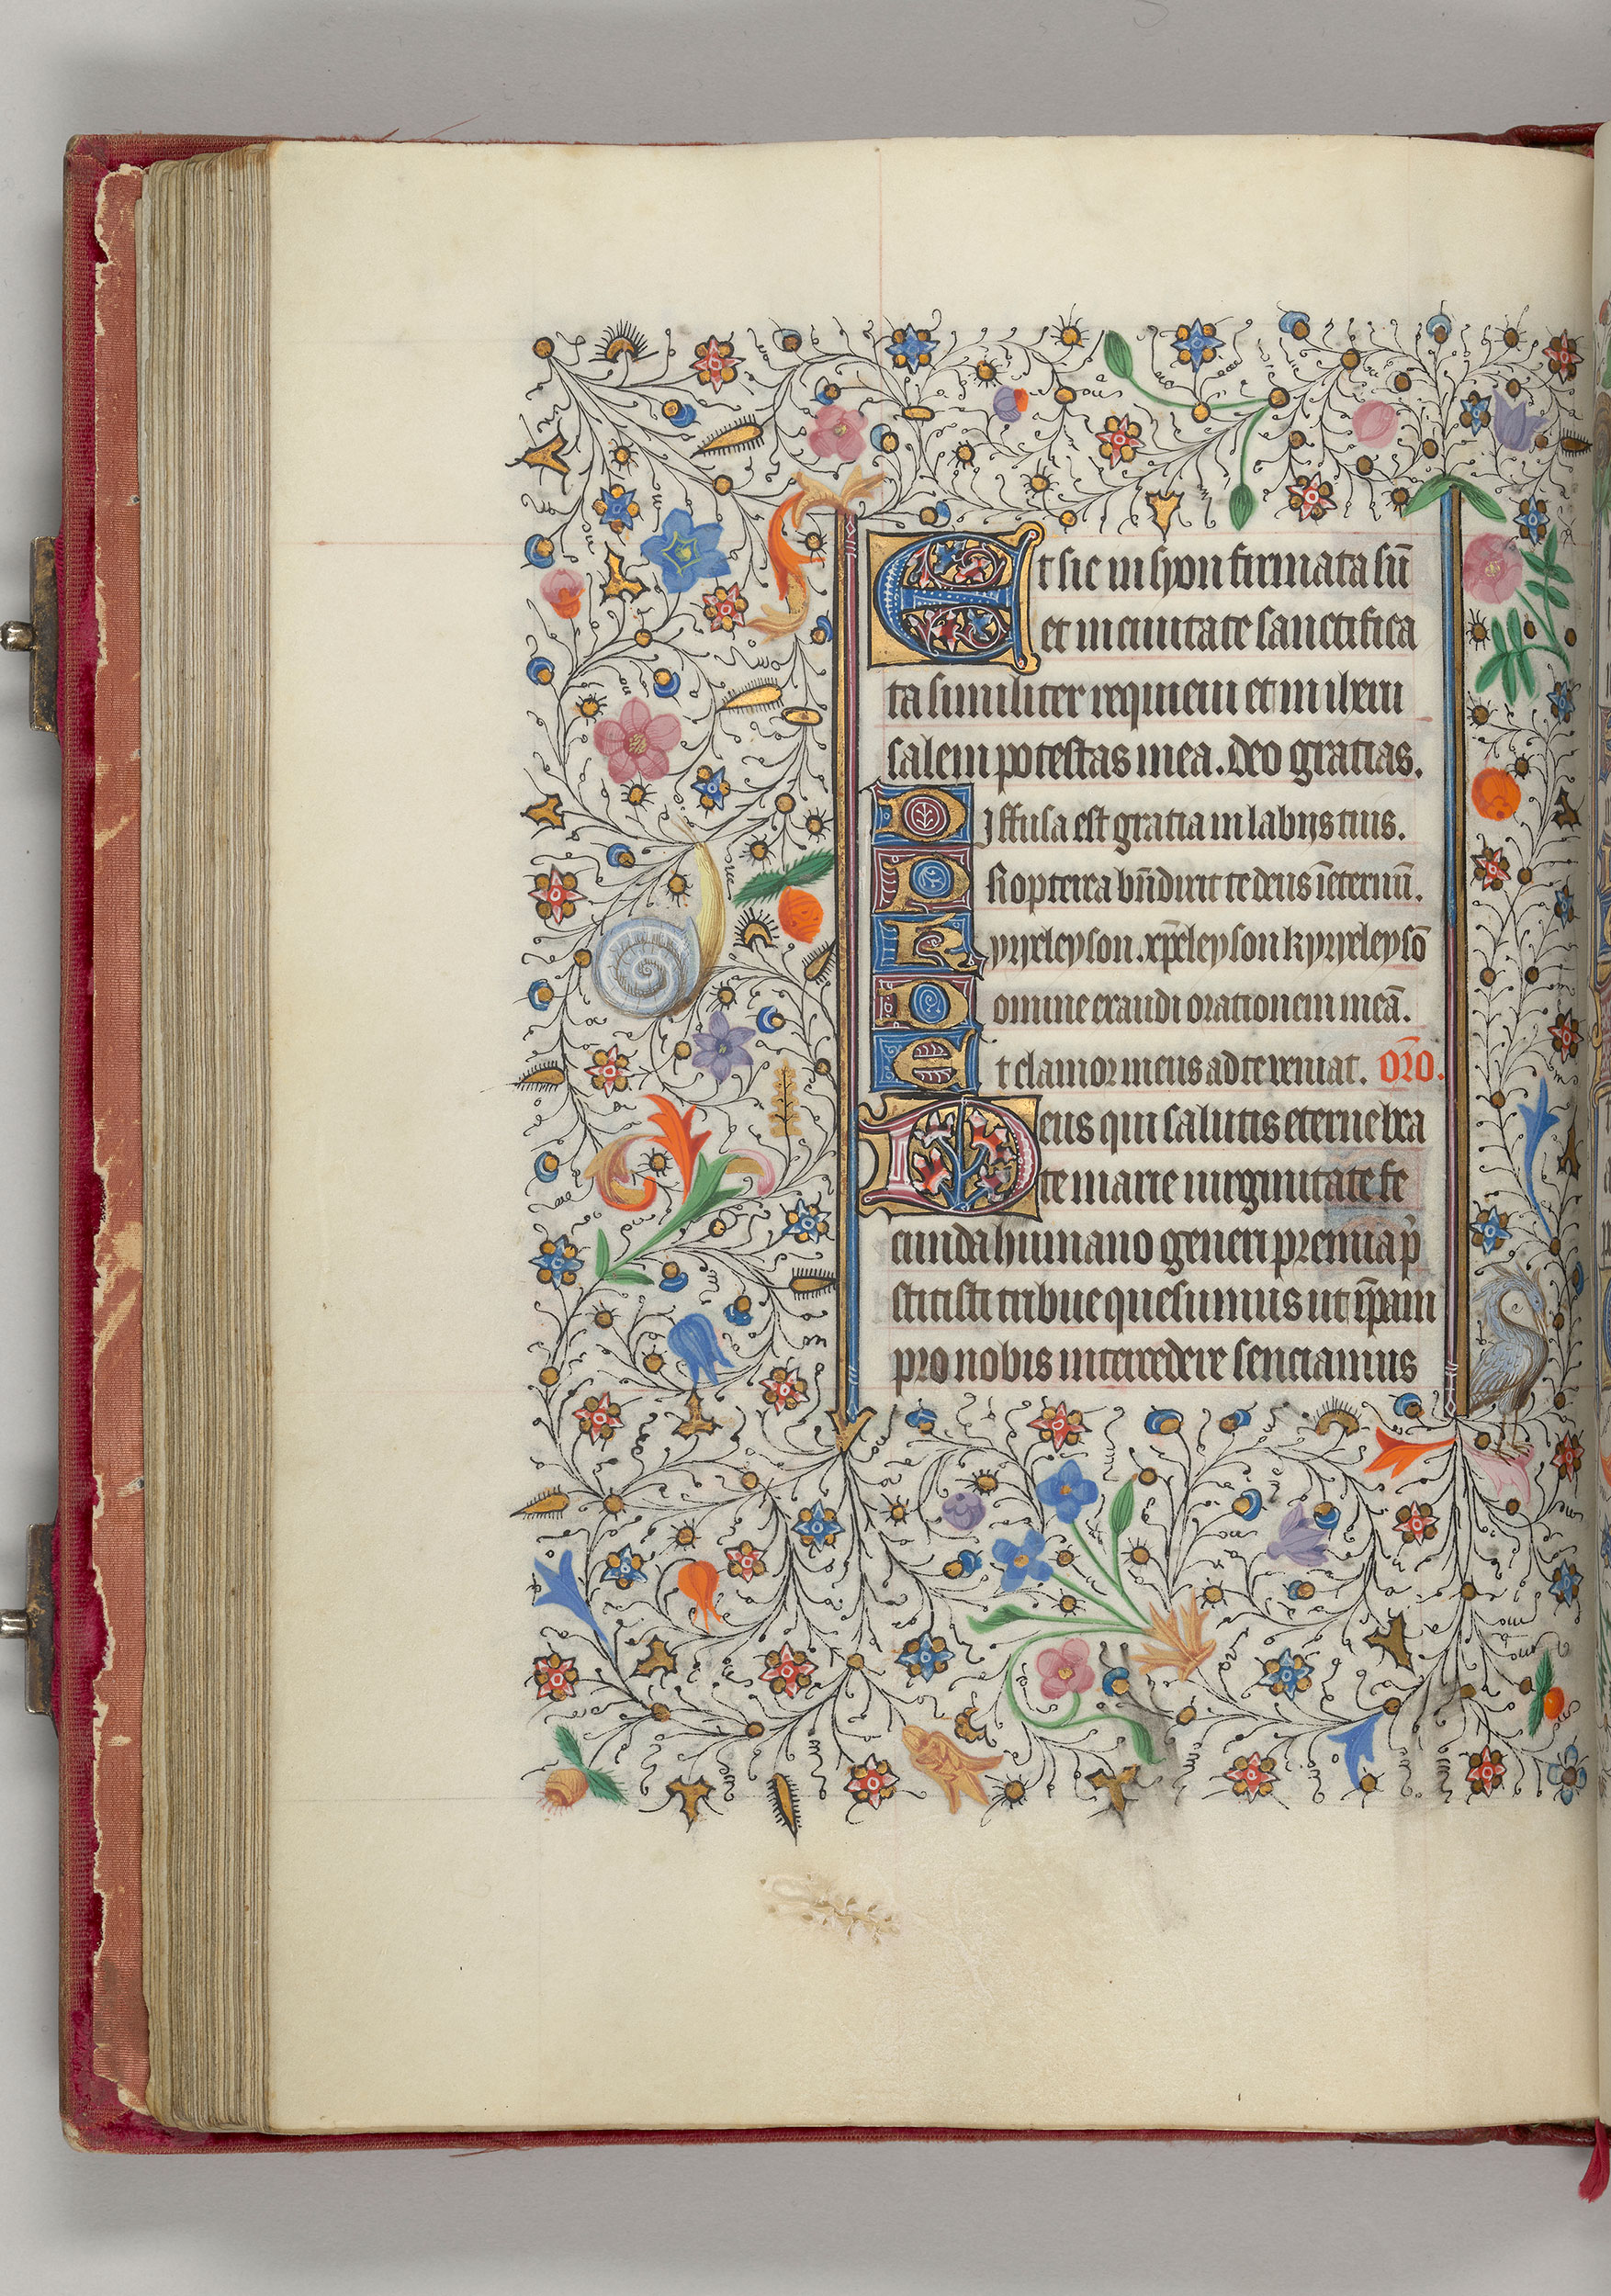 Et sic in syon firmata sū
et in ciuitate sanctifica
ta similiter requieui et in ihrru
salem potestas mea. Deo gratias.
Diffusa est gratia in labijs tuis.
Propterea bn̄dixit te deus ī eternū.
Kyrieleyson. xp̄eleyson kyrieleysō
Domine exaudi orationem meā.
Et clamor meus ad te veniat. Orō.
Deus qui salutis eterne bea
te marie virginitate fe
cunda humano generi premia p̄
stitisti tribue quesumus ut ip̄am
pro nobis intercedere senciamus